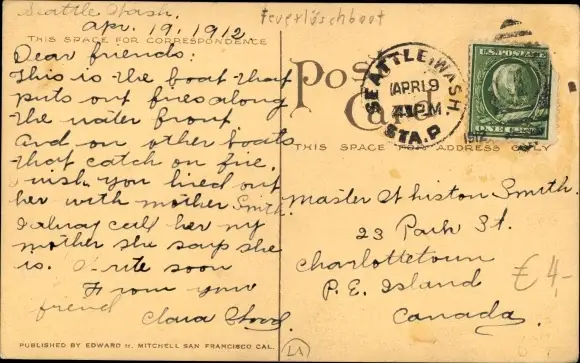 Seattle Wash.
Apr. 19, 1912
Feuerlöschboot
THIS SPACE FOR CORRESPONDENCE
Dear friends:
This is the boat that
puts out fires along
the water front
and on other boats
that catch on fire.
I wish you lived out
her with mother Smith.
I alway call her my
mother she says she
is. Write soon
From your
friend
Clara
PUBLISHED BY EDWARD H. MITCHELL SAN FRANCISCO CAL.
Post
Card
SEATTLE, WASH.
APR 19
PM
STA. P
U.S. POSTAGE
THIS SPACE FOR ADDRESS ONLY
Master Whiston Smith.
23 Park St.
Charlottetown
P. E. Island
Canada
€ 4,-